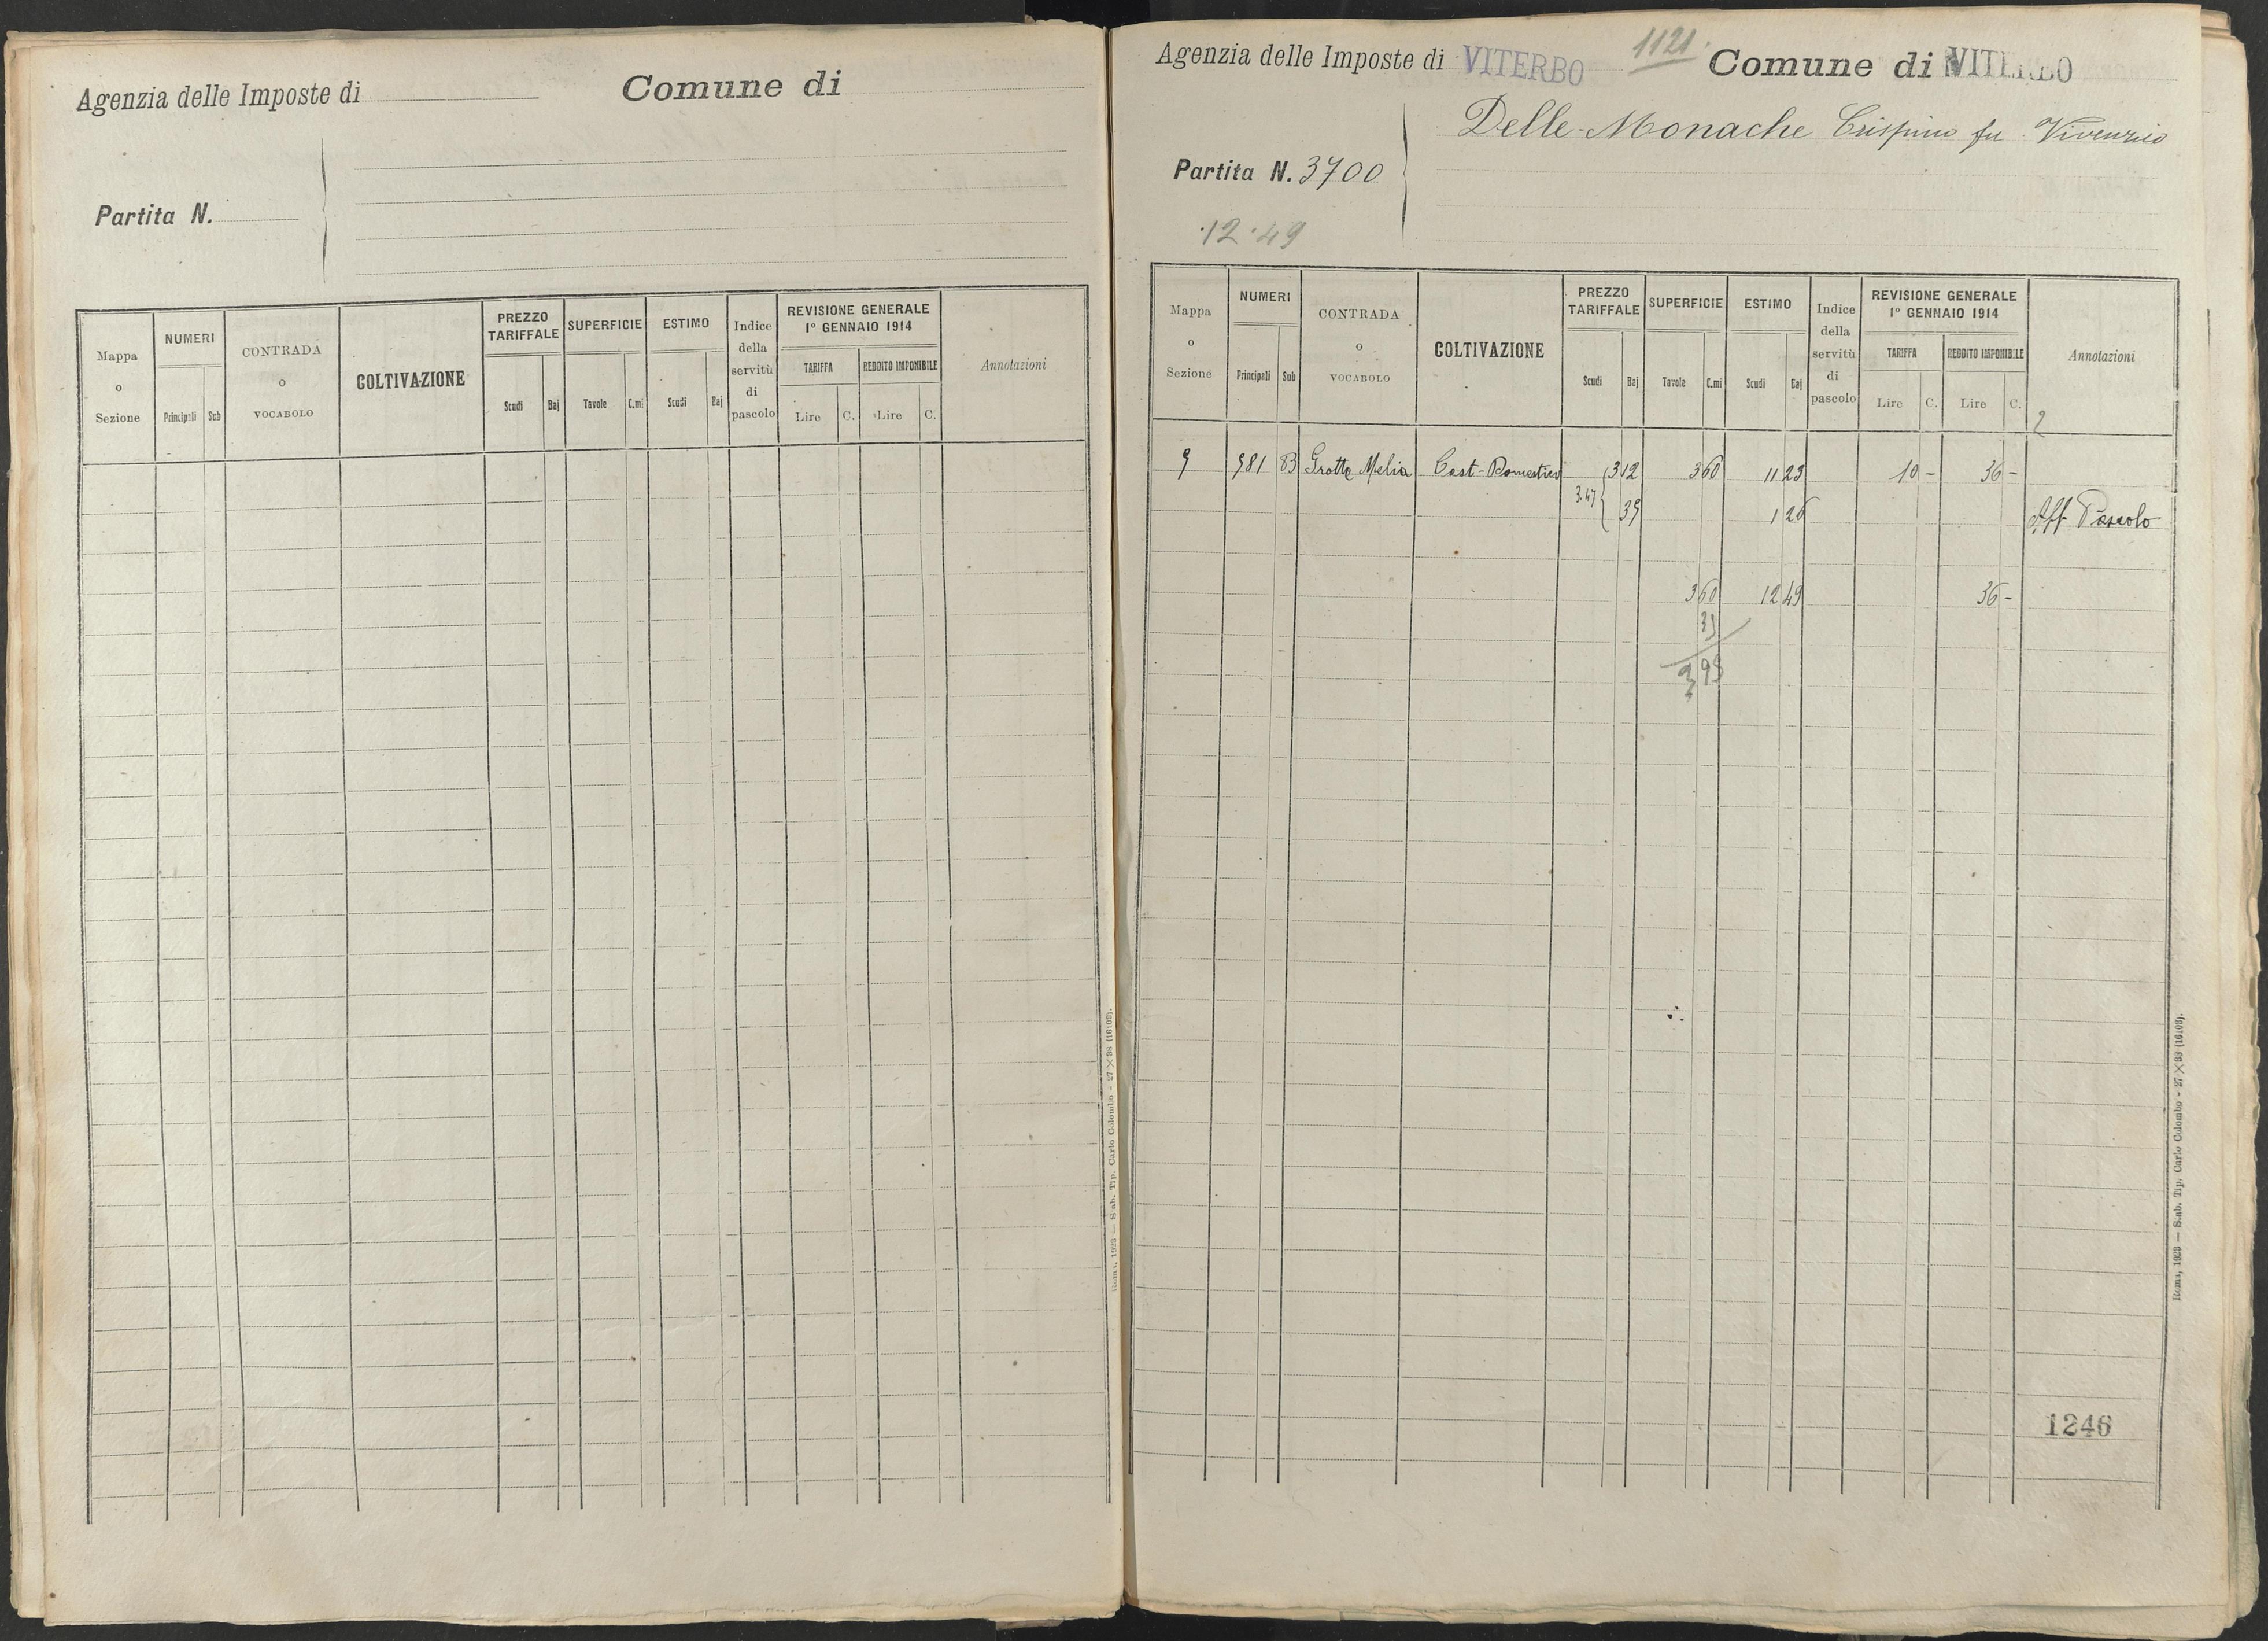 Agenzia delle Imposte di
Comune di
Partita N.
Mappa o Sezione
NUMERI
Principali Sub
CONTRADA o VOCABOLO
COLTIVAZIONE
PREZZO TARIFFALE
Scudi Baj
SUPERFICIE
Tavole C.mi
ESTIMO
Scudi Baj
Indice della servitù di pascolo
REVISIONE GENERALE
1º GENNAIO 1914
TARIFFA
Lire C.
REDDITO IMPONIBILE
Lire C.
Annotazioni
Roma, 1923 — Stab. Tip. Carlo Colombo - 27 × 38 (16108).
Agenzia delle Imposte di VITERBO
1121
Comune di VITERBO
Delle Monache Crispino fu Vivenzio
Partita N. 3700
12.49
Mappa o Sezione
NUMERI
Principali Sub
CONTRADA o VOCABOLO
COLTIVAZIONE
PREZZO TARIFFALE
Scudi Baj
SUPERFICIE
Tavole C.mi
ESTIMO
Scudi Baj
Indice della servitù di pascolo
REVISIONE GENERALE
1º GENNAIO 1914
TARIFFA
Lire C.
REDDITO IMPONIBILE
Lire C.
Annotazioni
2
9 981 83 Grotte Melia Cast-Domestico 3 12 3 60 11 23 10 - 36 -
3.47 35 1 26 Aff. Pascolo
3 60 12 49 36 -
1246
Roma, 1923 — Stab. Tip. Carlo Colombo - 27 × 38 (16108).